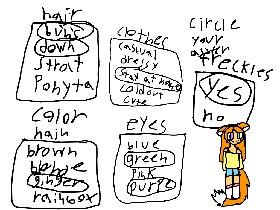 hair
buns
down
Strat
Ponyta
clothes
casual
dressy
Stay at home
cold out
cute
circle
your
answer
freckles
yes
no
color
hair
brown
blonde
ginger
rainbox
eyes
blue
green
Pink
purple